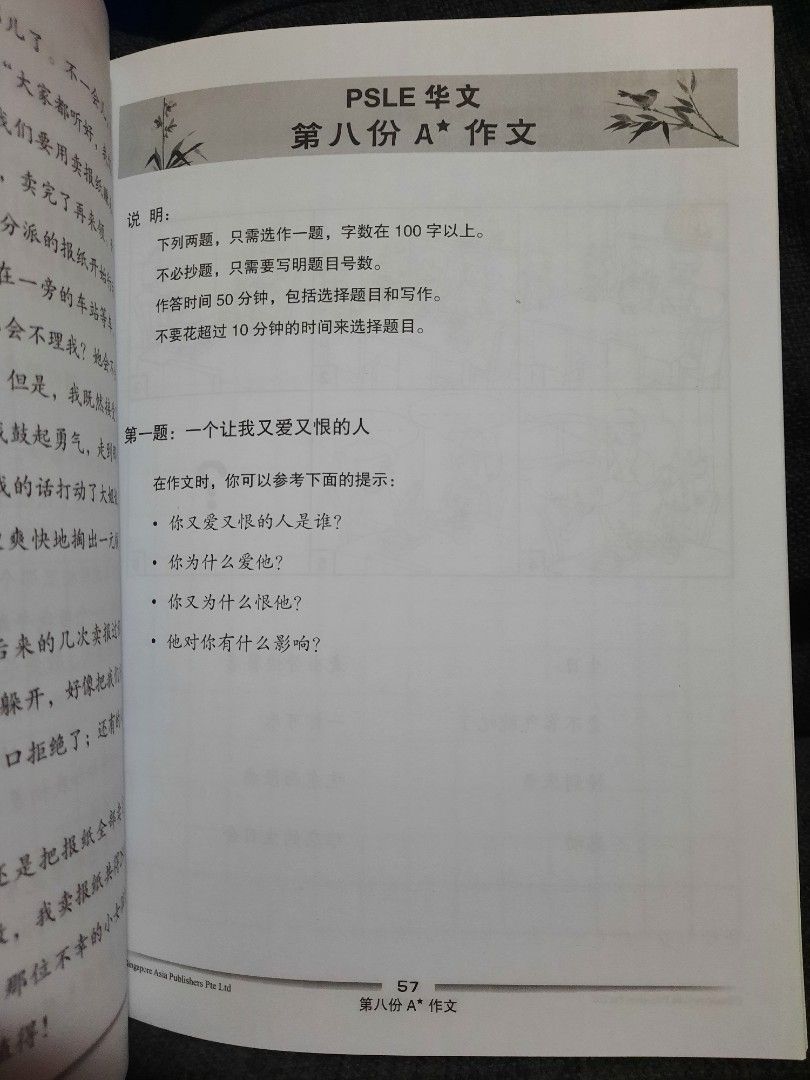 儿了。不一会儿
“大家都听好，
我们要用卖报纸
，卖完了再来领
分派的报纸开始
在一旁的车站等
会不理我？她会不
但是，我既然接受
我鼓起勇气，走到
我的话打动了大姐
爽快地掏出一元
后来的几次卖报过
躲开，好像把我们
口拒绝了；还有的
还是把报纸全部卖
，我卖报纸共得
那位不幸的小女
值得！
PSLE 华文
第八份 A★ 作文
说 明：
下列两题，只需选作一题，字数在 100 字以上。
不必抄题，只需要写明题目号数。
作答时间 50 分钟，包括选择题目和写作。
不要花超过 10 分钟的时间来选择题目。
第一题：一个让我又爱又恨的人
在作文时，你可以参考下面的提示：
• 你又爱又恨的人是谁？
• 你为什么爱他？
• 你又为什么恨他？
• 他对你有什么影响？
Singapore Asia Publishers Pte Ltd
57
第八份 A★ 作文